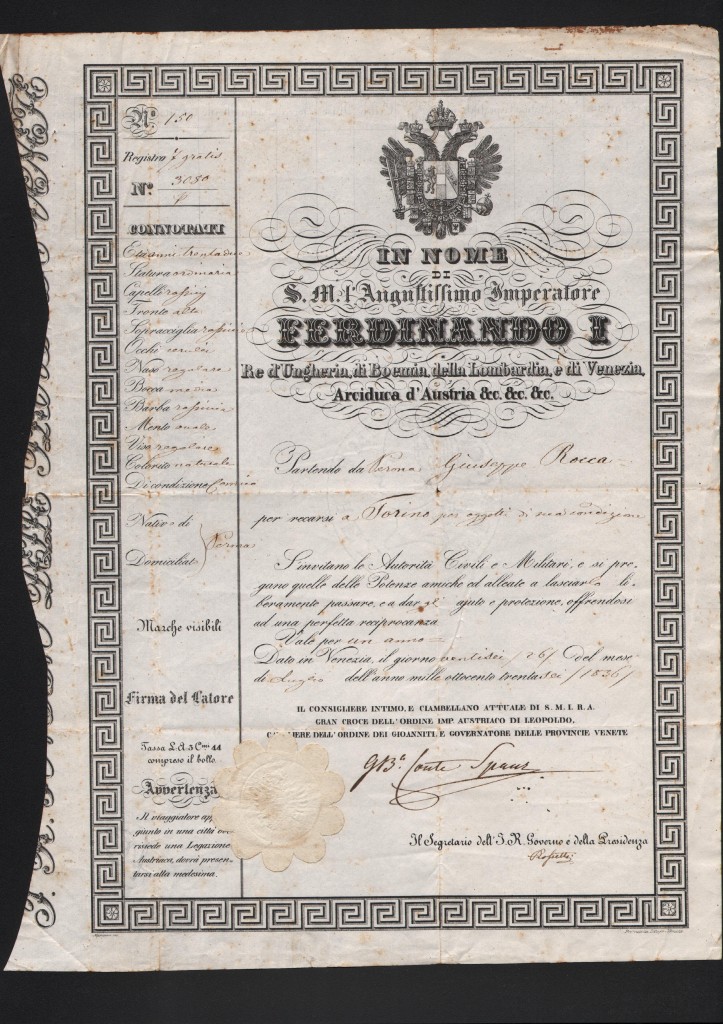 Nº 150
Registra gratis
Nº 3080
CONNOTATI
Età anni trentadue
Statura ordinaria
Capelli rossicci
Fronte alta
Sopracciglia rossiccie
Occhi
Naso regolare
Bocca media
Barba rossiccia
Mento ovale
Viso regolare
Colorito naturale
Di condizione
Nativo di
Domiciliato
Verona
Marche visibili
Firma del Latore
Tassa L.A. 3 Cmi 44
compreso il bollo.
Avvertenza
Il viaggiatore ap
giunto in una città ove
risiede una Legazione
Austriaca, dovrà presen-
tarsi alla medesima.
IN NOME
DI
S. M. l'Augustissimo Imperatore
FERDINANDO I
Re d'Ungheria, di Boemia, della Lombardia, e di Venezia,
Arciduca d'Austria &c. &c. &c.
Partendo da Verona Giuseppe Rocca
per recarsi a Torino per oggetti di sua condizione
S'invitano le Autorità Civili e Militari, e si pre-
gano quelle delle Potenze amiche ed alleate a lasciarlo li-
beramente passare, e a dargli ajuto e protezione, offrendosi
ad una perfetta reciprocanza
Vale per un anno =
Dato in Venezia, il giorno ventisei /26/ del mese
di Luglio dell'anno mille ottocento trentasei /1836/
IL CONSIGLIERE INTIMO, E CIAMBELLANO ATTUALE DI S. M. I. R. A.
GRAN CROCE DELL'ORDINE IMP. AUSTRIACO DI LEOPOLDO,
CAVALIERE DELL'ORDINE DEI GIOANNITI, E GOVERNATORE DELLE PROVINCIE VENETE
GBa Conte Spaur
Il Segretario dell'I. R. Governo e della Presidenza